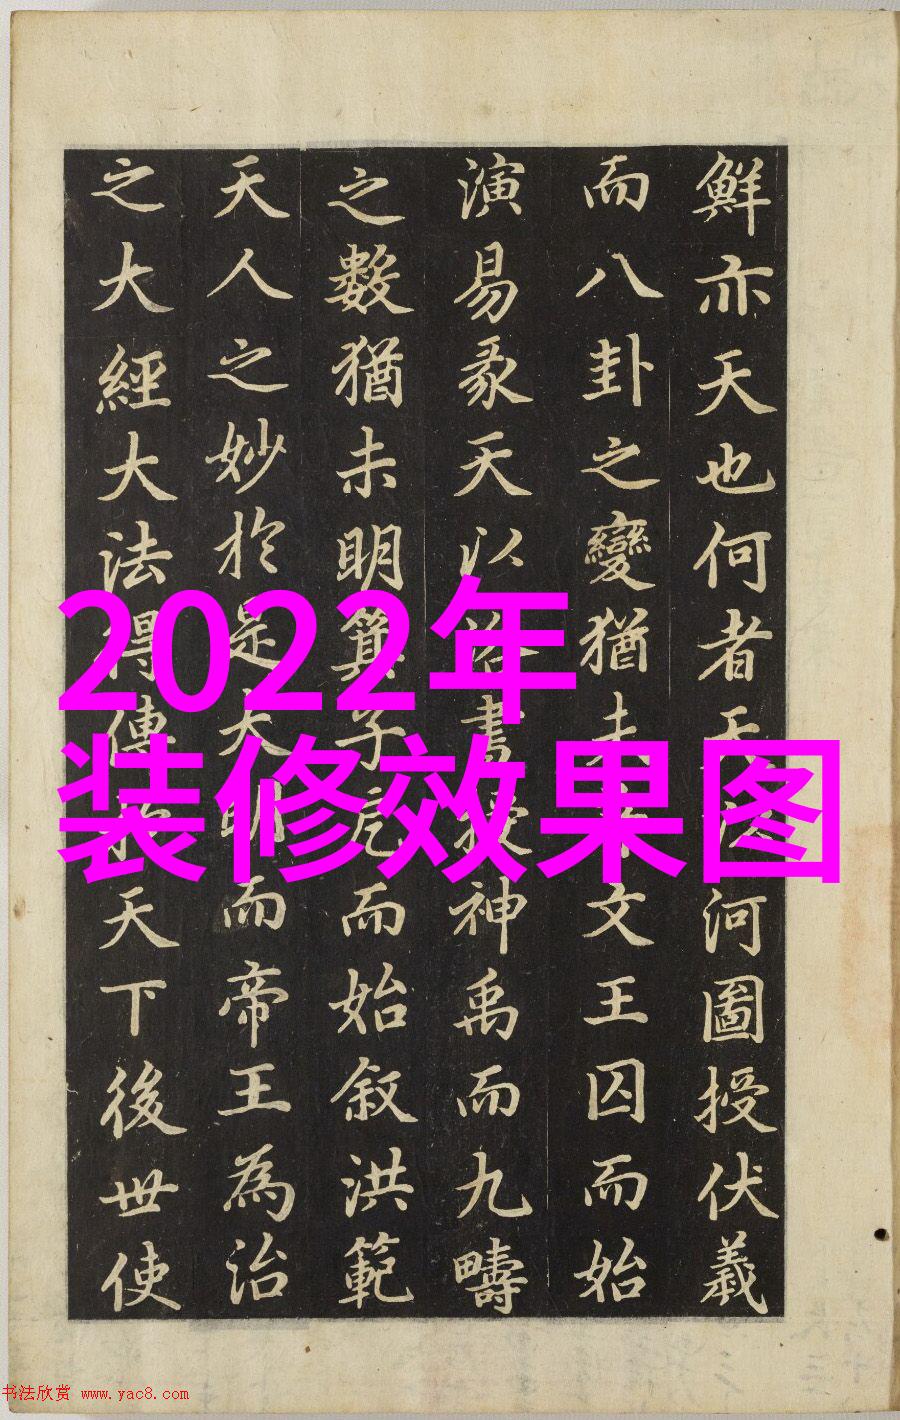 鮮亦天也何者天以河圖授伏羲
而八卦之變猶未文王囚而始
演易彖天以洛書授神禹而九疇
之數猶未明箕子戹而始叙洪範
天人之妙於是大明而帝王為治
之大經大法得傳於天下後世使
2022年
装修效果图
书法欣赏 www.yac8.com